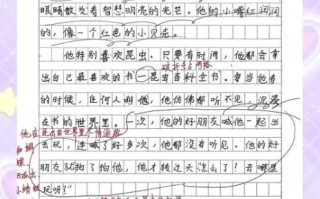 眼睛散发着智慧明亮的光芒。他的小嘴红润润
的，像一个红色的小贝壳。
他特别喜欢昆虫、只要有时间，他都会拿
出自己最喜欢的书—昆虫百科全书。每当他看
的时候，任何人喊他，他仿佛都听不见，沉浸
在书的世界里。一次，他的好朋友喊他一起出
去玩，连喊了好多次，他都没有听见。他的好
朋友就拍了拍他，他才转过头怎么了？去哪里
玩呀？”